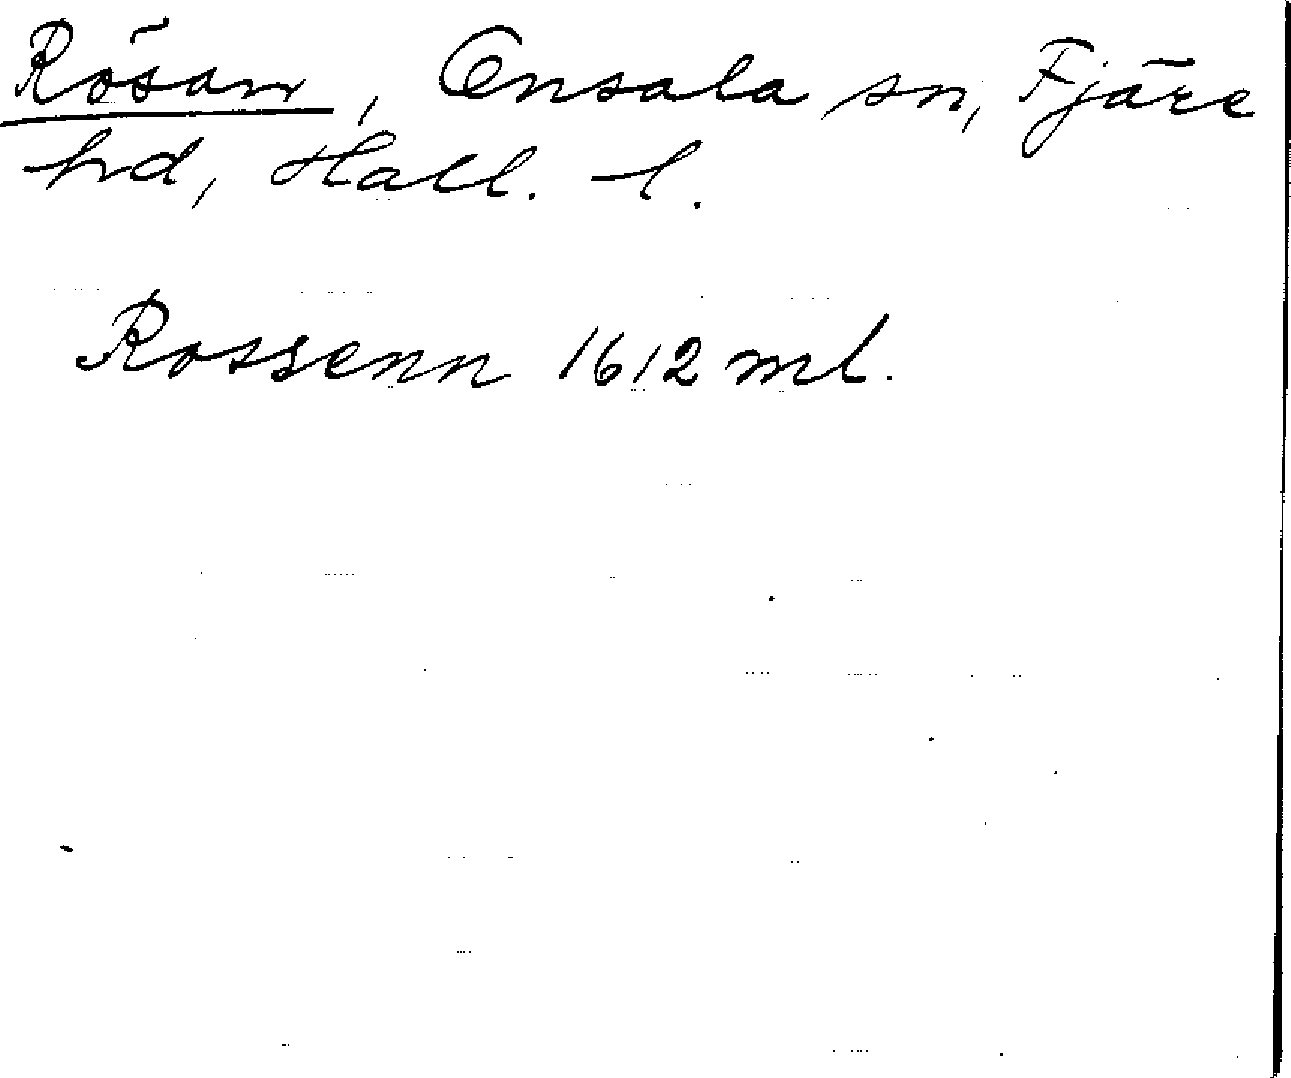 Rösan, Onsala sn, Fjäre
hd, Hall. l.
Rossenn 1612 ml.